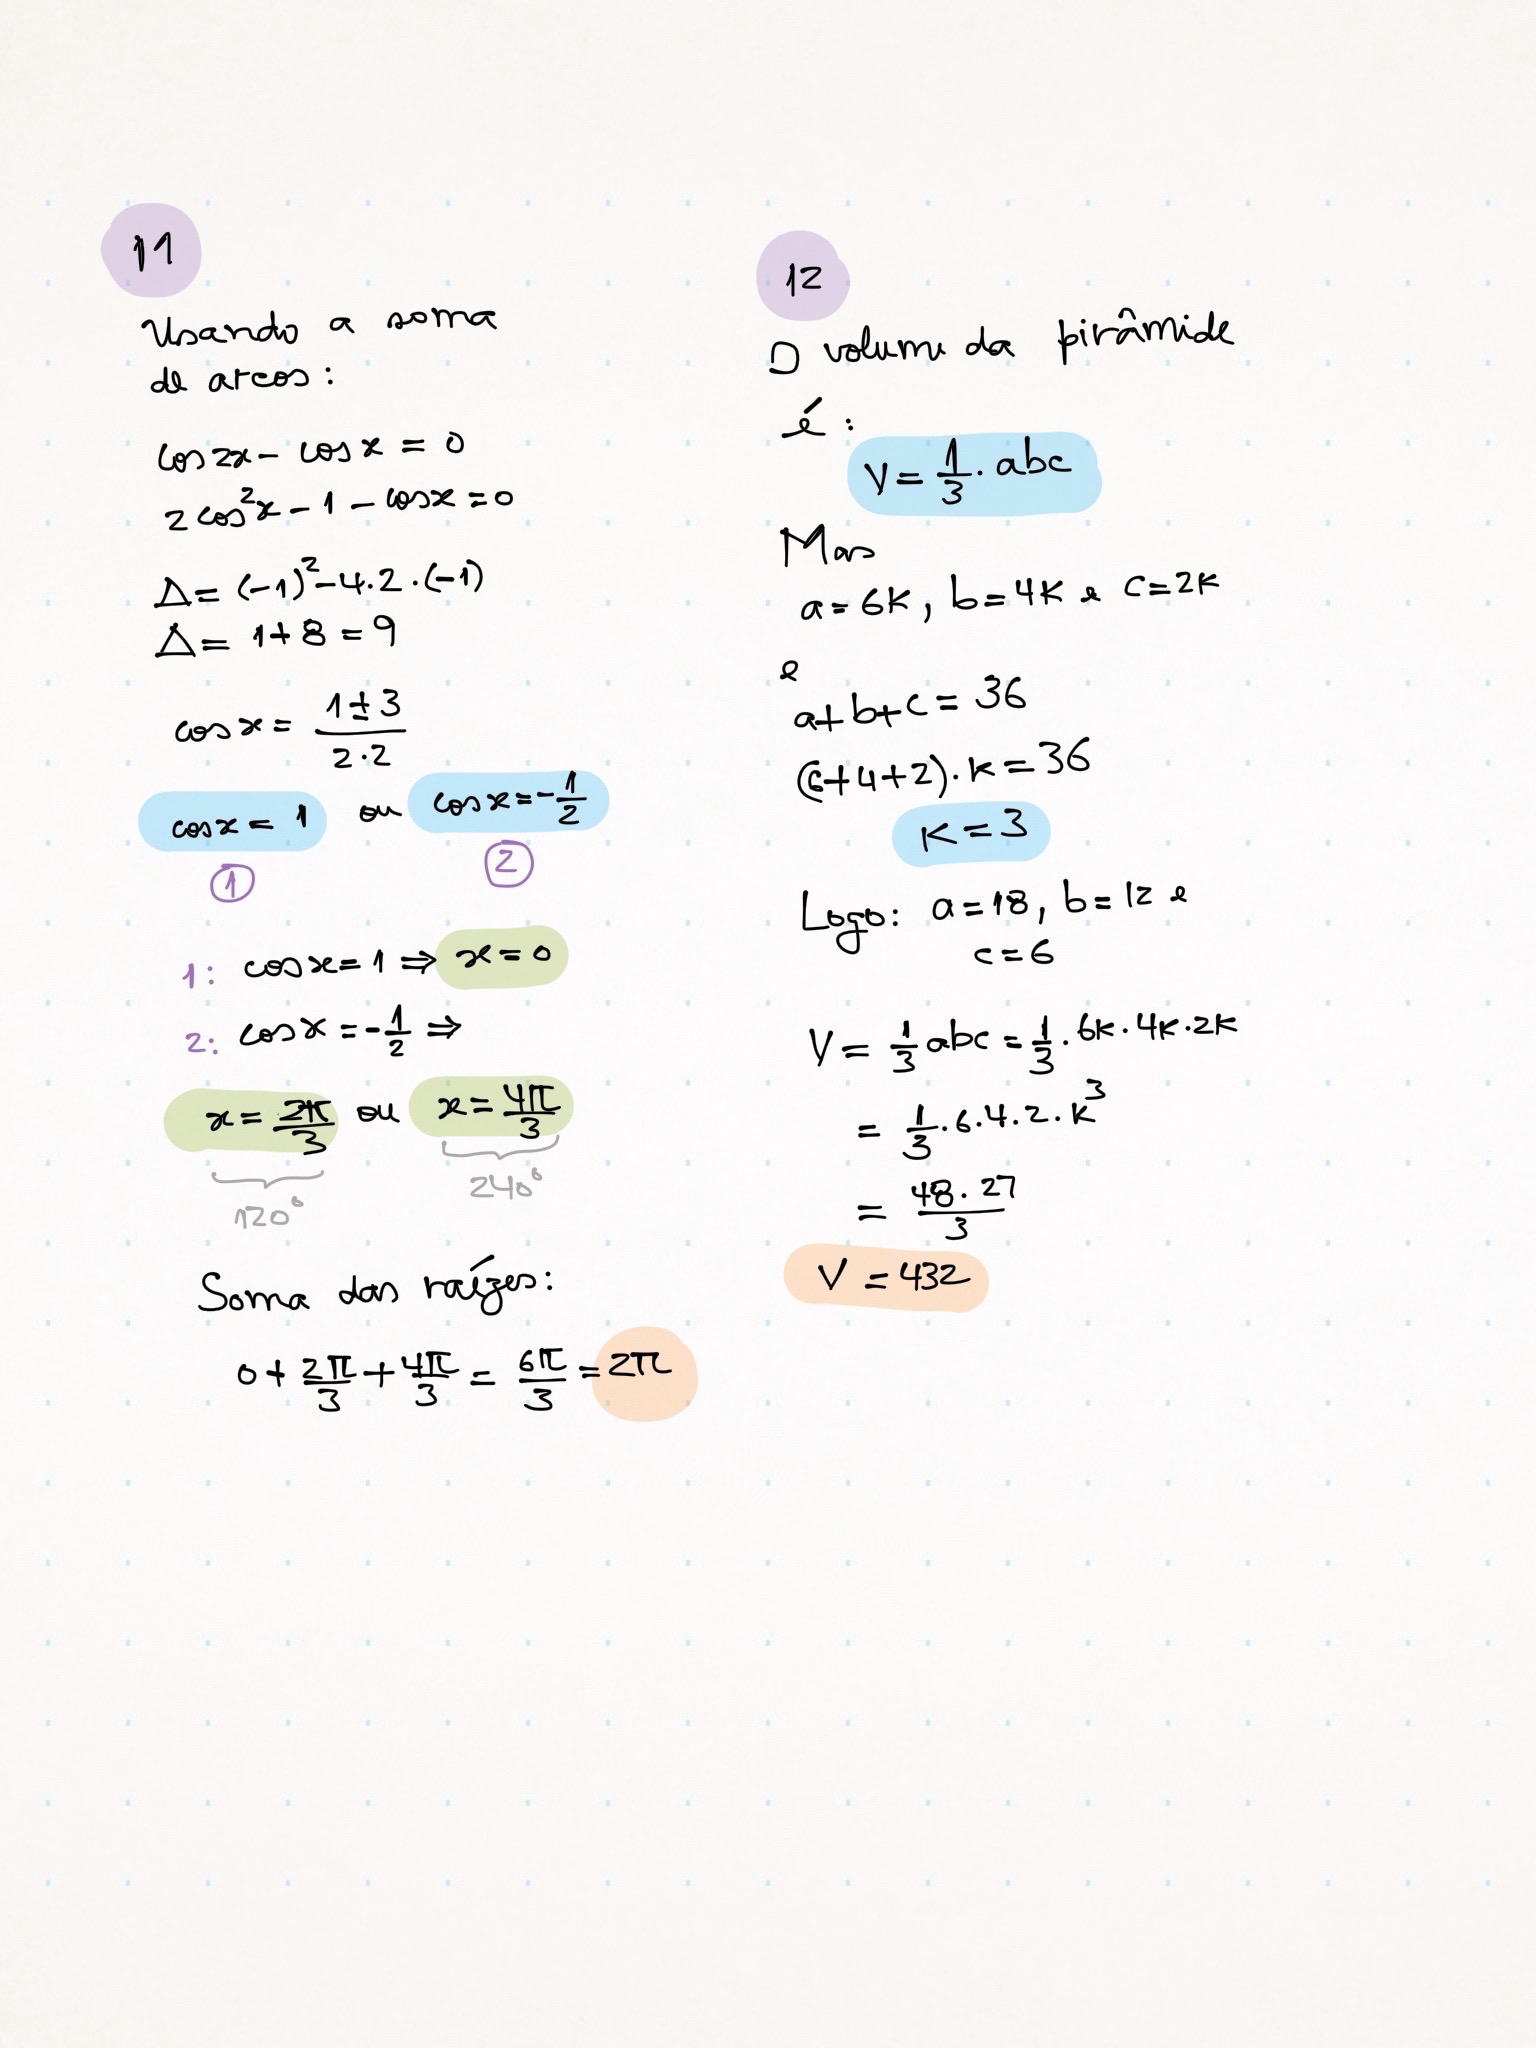 11
Usando a soma
de arcos:
cos2x - cos x = 0
2cos²x - 1 - cosx = 0
Δ = (-1)² - 4·2·(-1)
Δ = 1 + 8 = 9
cos x = (1 ± 3)/(2·2)
cosx = 1 ou cosx = -1/2
1 2
1: cosx = 1 ⇒ x = 0
2: cosx = -1/2 ⇒
x = 2π/3 ou x = 4π/3
120° 240°
Soma das raízes:
0 + 2π/3 + 4π/3 = 6π/3 = 2π
12
O volume da pirâmide
é:
V = 1/3 · abc
Mas
a = 6K, b = 4K e c = 2K
e
a + b + c = 36
(6 + 4 + 2)·K = 36
K = 3
Logo: a = 18, b = 12 e
c = 6
V = 1/3 abc = 1/3 · 6K · 4K · 2K
= 1/3 · 6 · 4 · 2 · K³
= 48 · 27/3
V = 432